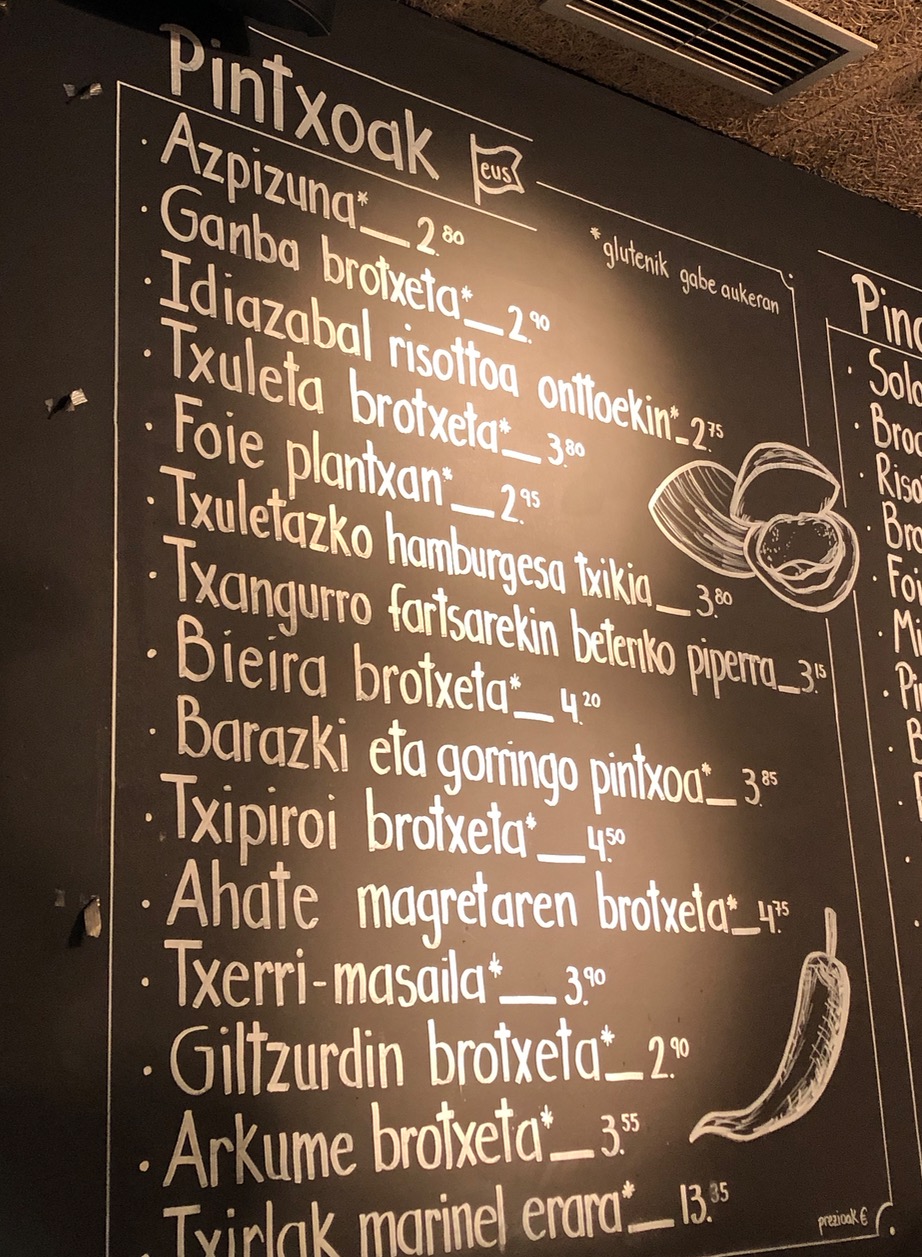 Pintxoak eus
* glutenik gabe aukeran
· Azpizuna* 2.80
· Ganba brotxeta* 2.90
· Idiazabal risottoa onttoekin* 2.75
· Txuleta brotxeta* 3.80
· Foie plantxan* 2.95
· Txuletazko hamburgesa txikia 3.80
· Txangurro fartsarekin beteriko piperra 3.15
· Bieira brotxeta* 4.20
· Barazki eta gorringo pintxoa* 3.85
· Txipiroi brotxeta* 4.50
· Ahate magretaren brotxeta* 4.75
· Txerri-masaila* 3.90
· Giltzurdin brotxeta* 2.90
· Arkume brotxeta* 3.55
· Txirlak marinel erara* 13.35
prezioak €